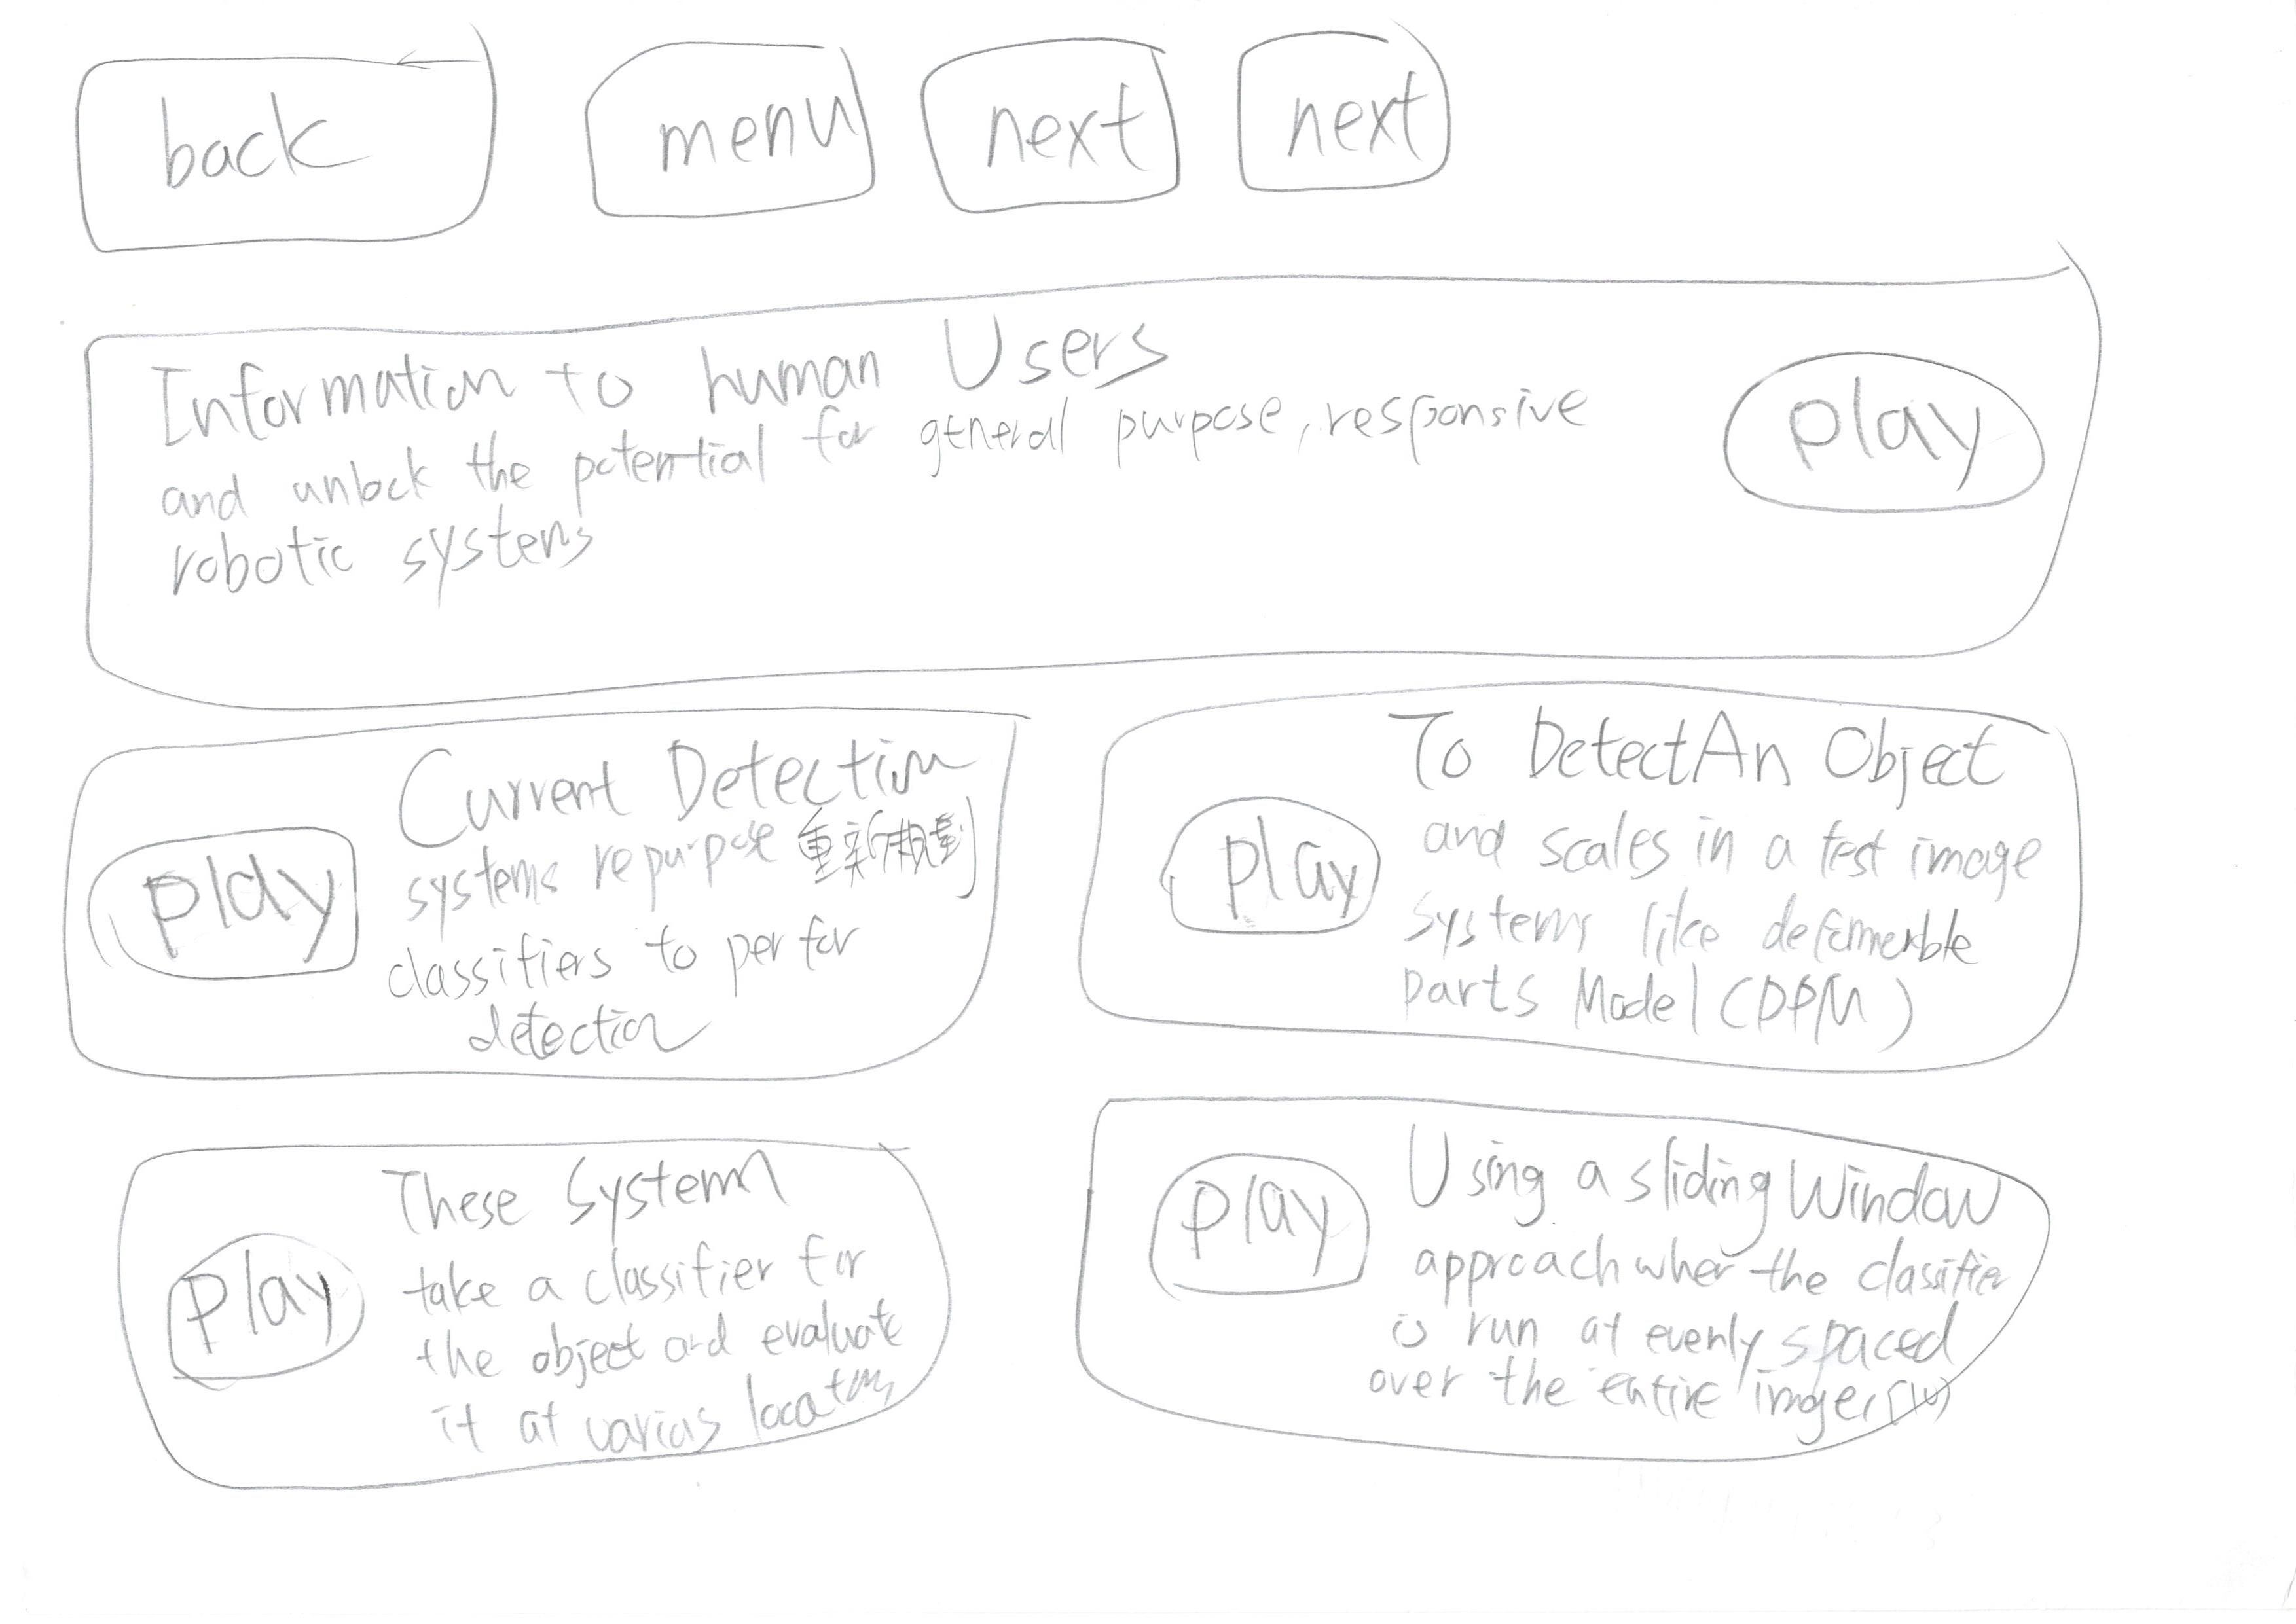 back
menu
next
next
Information to human Users
and unlock the potential for general purpose, responsive
robotic systems
play
play
Current Detection
systems repurpose 重新規劃
classifiers to perfor
detection
play
To Detect An Object
and scales in a test image
systems like
parts Model (DPM)
play
These System
take a classifier for
the object and evaluate
it at locations
play
Using a sliding Window
approach wher the classifier
is run at evenly spaced
over the entire